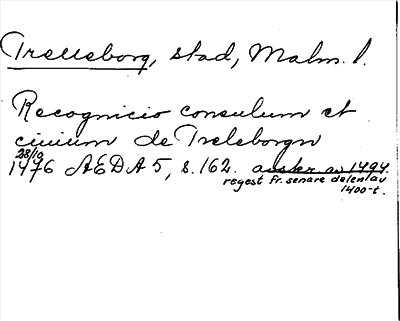 Trelleborg, stad, Malm. l.
Recognicio consulum et
ciuium de Treleborgn
28/10
1476 AEDA 5, s. 162. avskr. av 1494.
regest fr. senare delen av
1400-t.